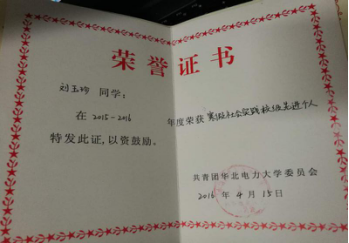 荣誉证书
刘玉玲 同学：
在 2015-2016 年度荣获 寒假社会实践校级先进个人
特发此证，以资鼓励。
共青团华北电力大学委员会
2016 年 4 月 15 日